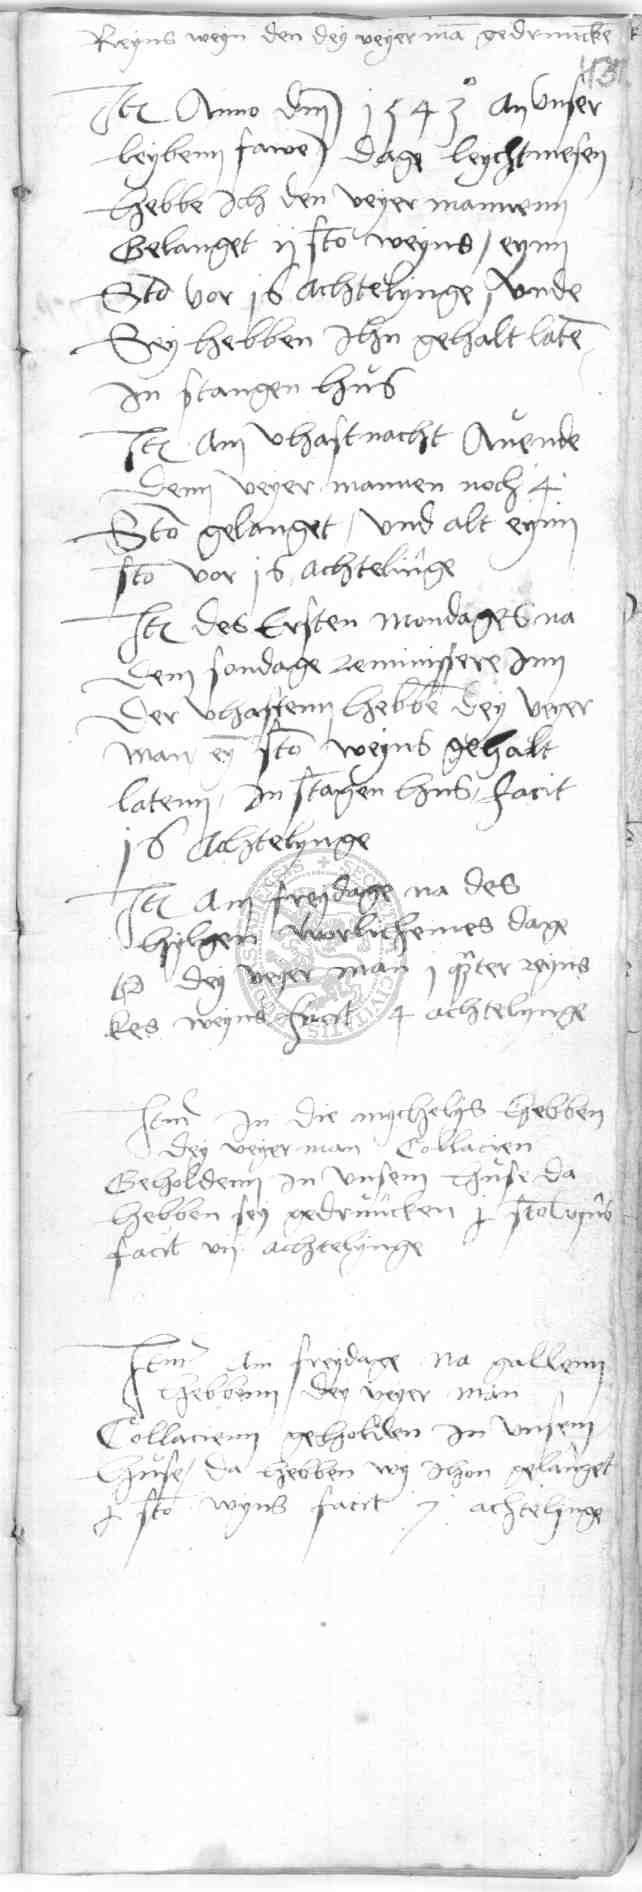 Reyns weyn den dey veyer mā gedrunckē
431
Itē Anno dm̄ 1543 An vnser
leybenn frawē dage leychtmesen
Hebbe Ich den veyer mannenn
Gelanget ij sto weyns / eynn
Sto vor 16 achtelynge / vnde
Sey hebben Ihn gehalt latē
In stangen hůs
Itē Am vhastnacht Auende
Denn veyer mannen noch 4
Sto gelanget / vnd alt eynn
sto vor 16 achtelinge
Itē des Ersten mondages na
Dem sondage reminissere Inn
Der vhastenn hebbē dey veyer
man eȳ sto weyns gehalt
latenn In stangen hus / facit
16 Achtelynge
Itē Am freydage na des
hylgen worlichemes dage
dey veyer man j qrter reyns
kes weyns facit 4 achtelynge
Itm In die mychelys Hebben
dey veyer man Collacien
Geholdenn In vnsem Huse da
Hebben sey gedruncken j sto wyns
facit vij achtelynge
Itm Am freydage Na gallenn
Hebbenn dey veyer man
Collacienn geholden In vnsem
Huse / da Hebben wy Ihon gelanget
j sto wyns facit 7 achtelynge